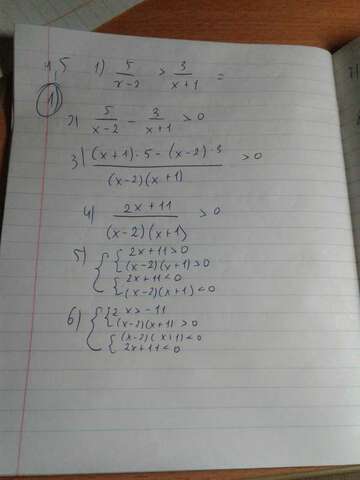 4,5 1) 5/(x-2) > 3/(x+1) =
1)
2) 5/(x-2) - 3/(x+1) > 0
3) ((x+1)·5-(x-2)·3)/((x-2)(x+1)) > 0
4) (2x+11)/((x-2)(x+1)) > 0
5) { { 2x+11>0
(x-2)(x+1)>0
{ 2x+11<0
(x-2)(x+1)<0
6) { { 2x>-11
(x-2)(x+1)>0
{ (x-2)(x+1)<0
2x+11<0